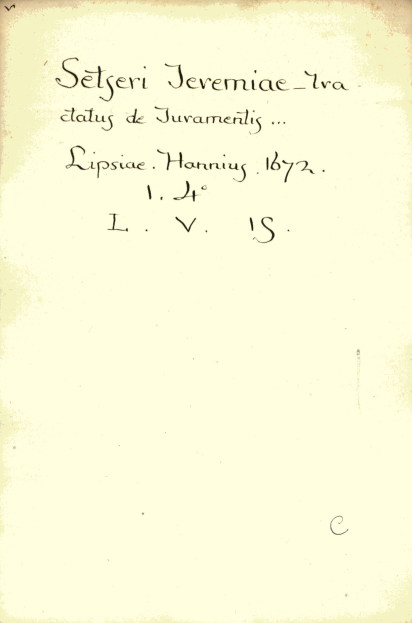 Setseri Jeremiae - Tra
ctatus de Juramentis ...
Lipsiae. Hannius. 1672.
1. 4°
L. V. 15.
C